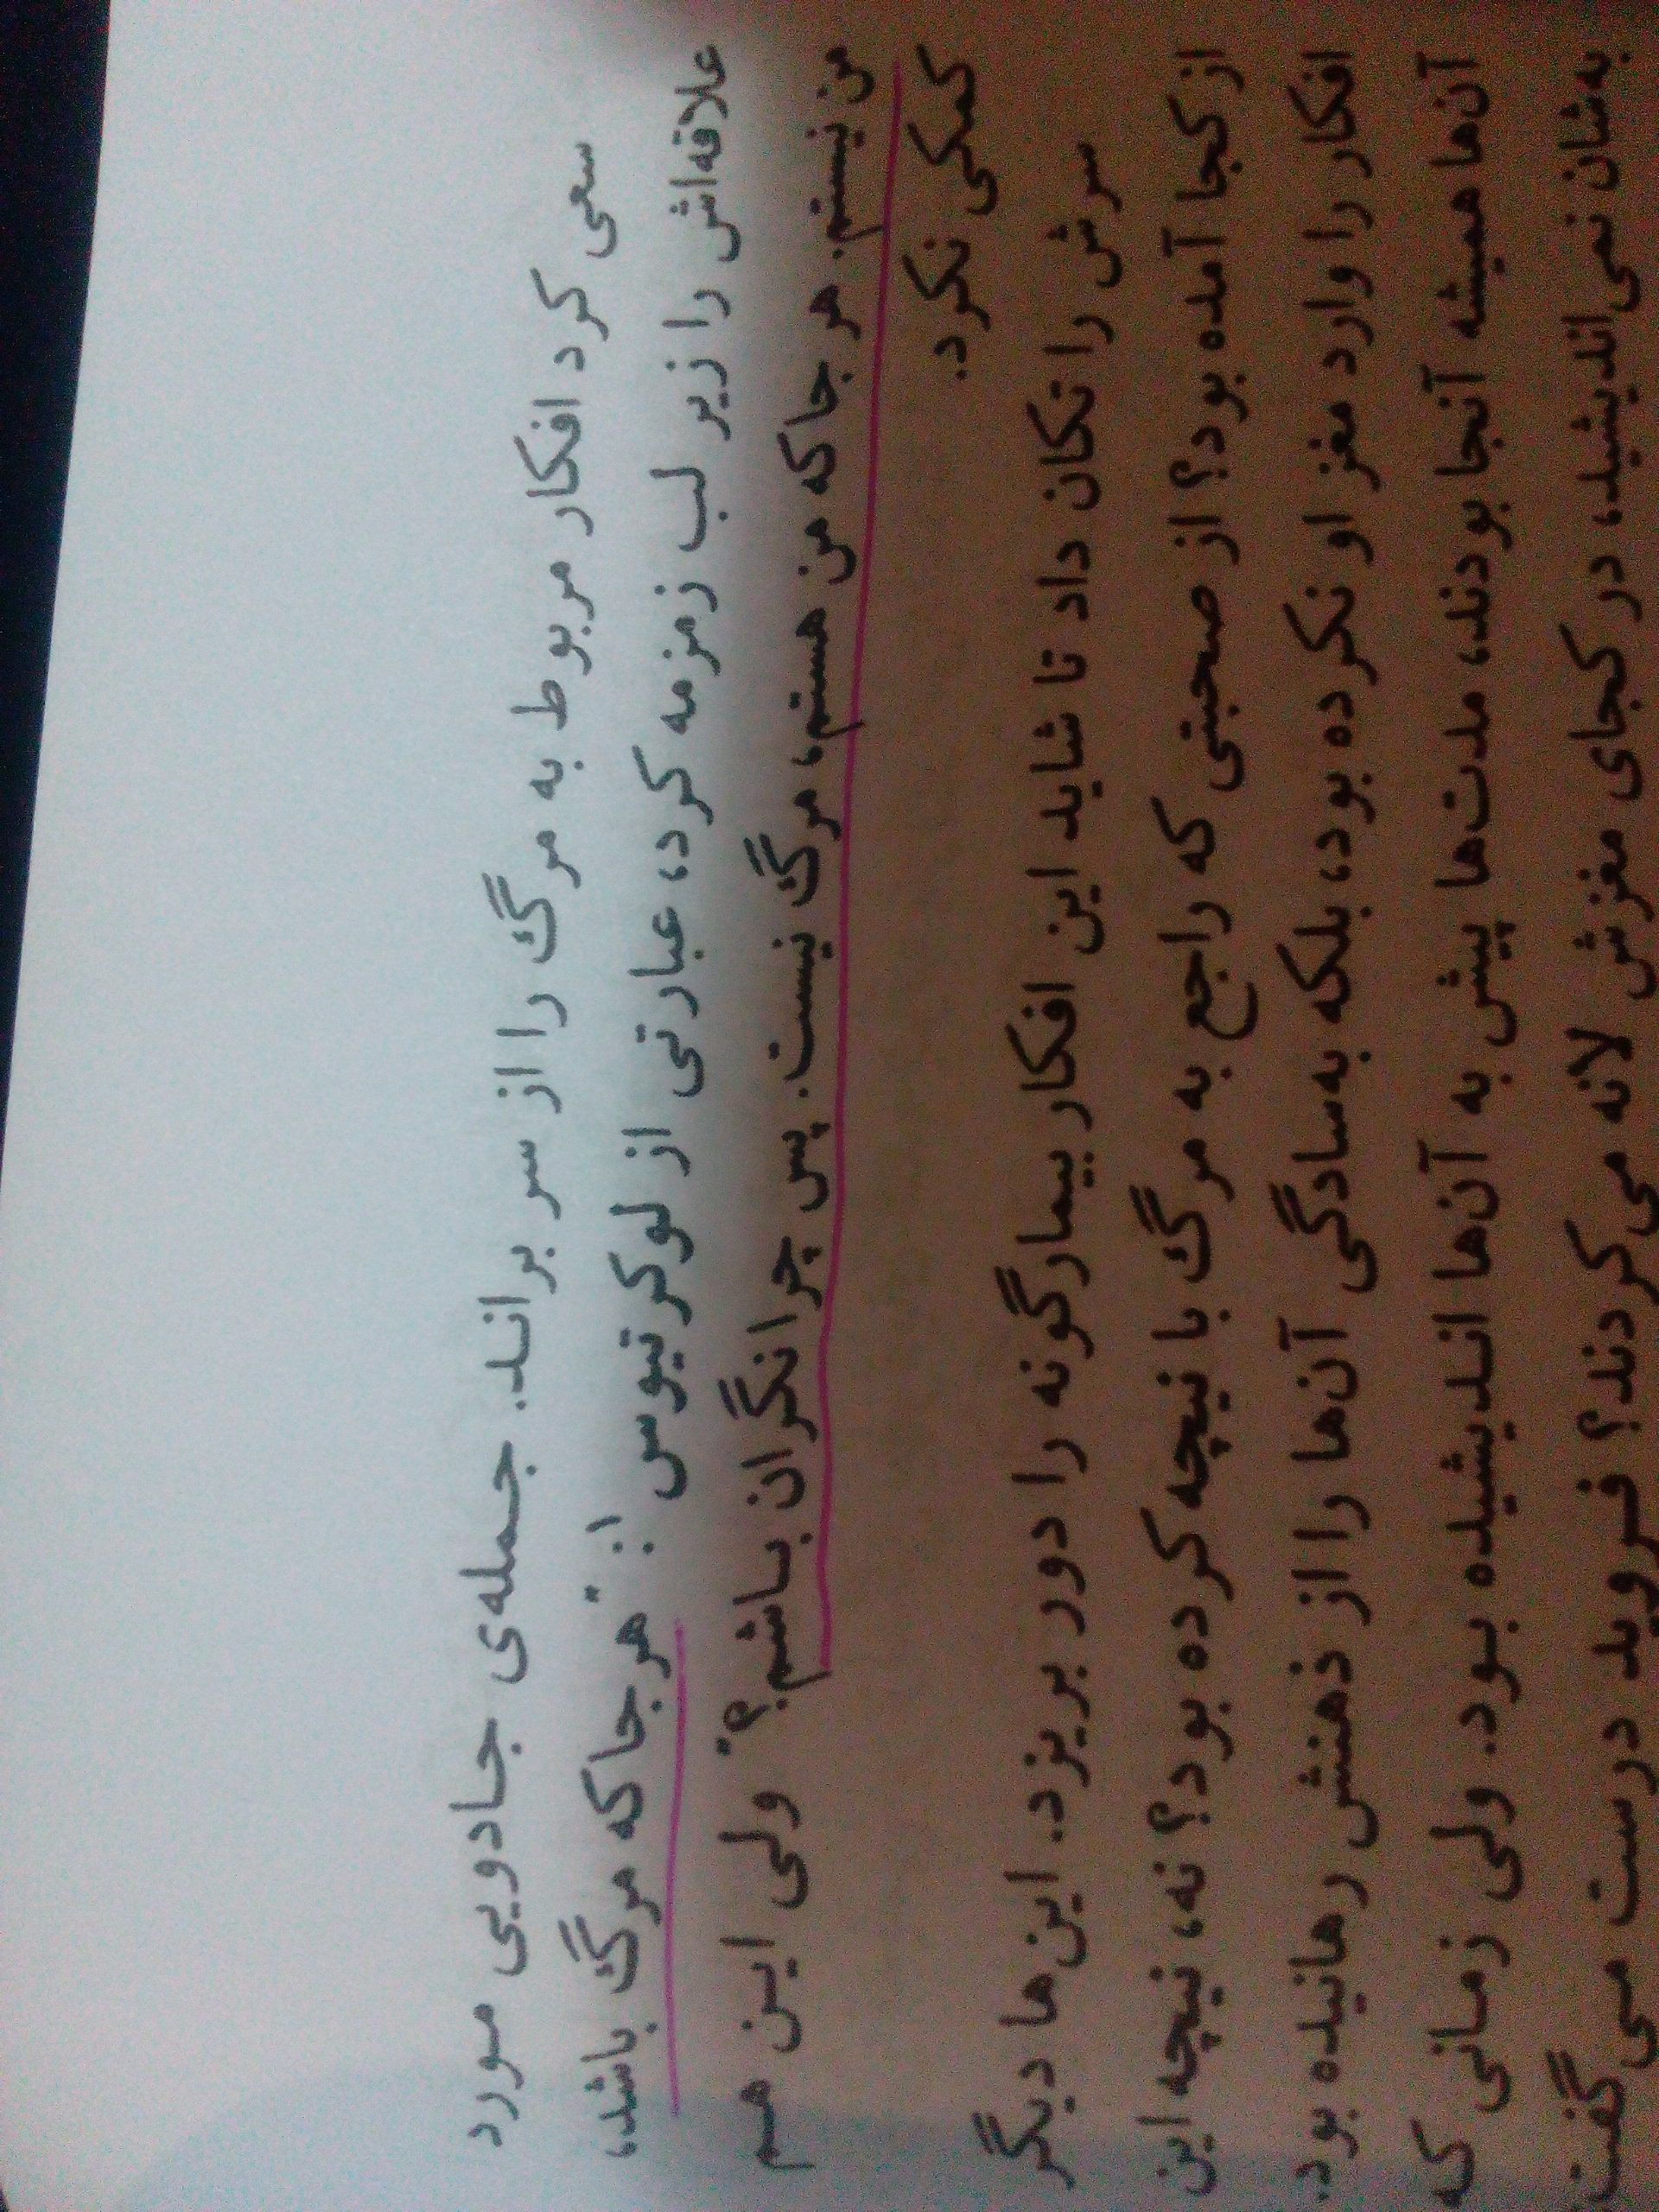 سعی کرد افکار مربوط به مرگ را از سر براند. جمله‌ی جادویی مورد
علاقه‌اش را زیر لب زمزمه کرد، عبارتی از لوکرتیوس!: "هر جا که مرگ باشد،
من نیستم. هر جا که من هستم، مرگ نیست. پس چرا نگران باشم؟" ولی این هم
کمکی نکرد.
سرش را تکان داد تا شاید این افکار بیمارگونه را دور بریزد. این‌ها دیگر
از کجا آمده بود؟ از صحبتی که راجع به مرگ با نیچه کرده بود؟ نه، نیچه این
افکار را وارد مغز او نکرده بود، بلکه به‌سادگی آن‌ها را از ذهنش رهانیده بود.
آن‌ها همیشه آنجا بودند، مدت‌ها پیش به آن‌ها اندیشیده بود. ولی زمانی که
به‌شان نمی‌اندیشید، در کجای مغزش لانه می‌کردند؟ فروید درست می‌گفت